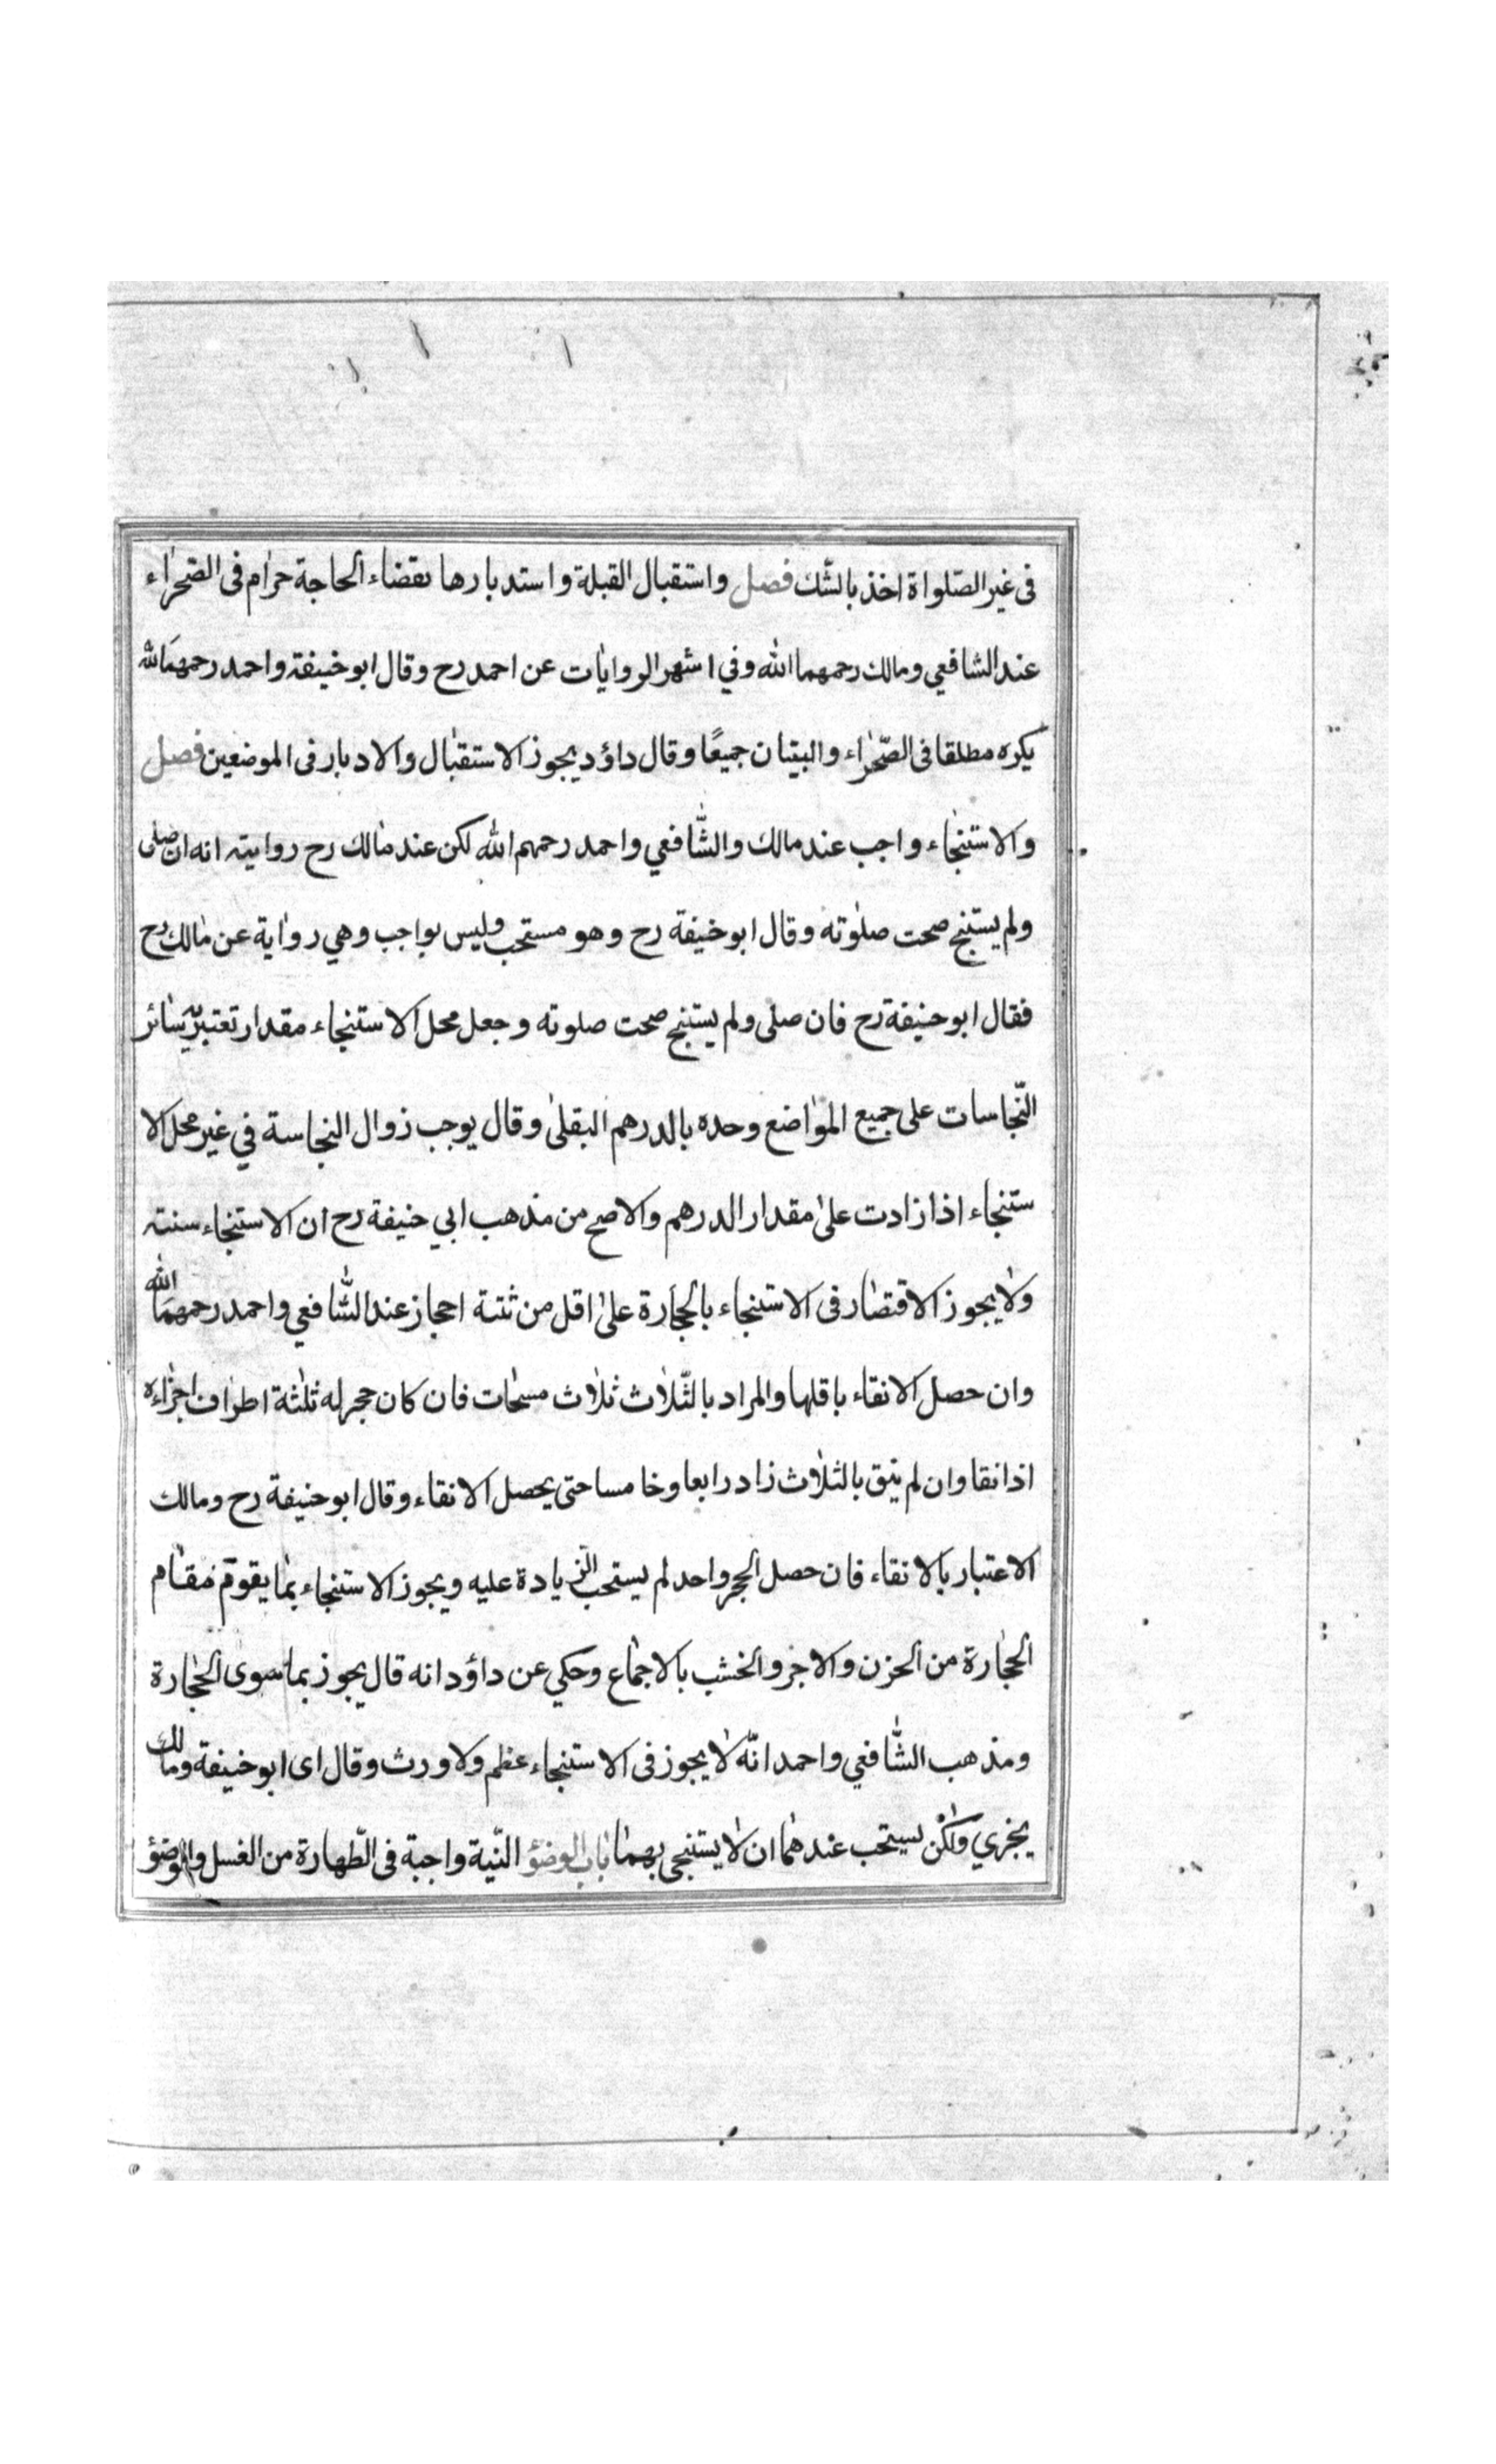 فى غير الصّلواة اخذ بالشّك فصل واستقبال القبلة واستدبارها بقضاء الحاجة حرام فى الصّحراء
عند الشافعي ومالك رحمهما الله وفي اشهر الروايات عن احمد رح وقال ابو خنيفة واحمد رحمهما الله
يكره مطلقا فى الصّحراء والبنيان جميعًا وقال داؤد يجوز الاستقبال والادبار فى الموضعين فصل
والاستنجاء واجب عند مالك والشّافعي واحمد رحمهم الله لكن عند مالك رح رواية انه ان صلى
ولم يستنج صحت صلوته وقال ابو خنيفة رح وهو مستحب وليس بواجب وهي رواية عن مالك رح
فقال ابو حنيفة رح فان صلى ولم يستنج صحت صلوته وجعل محل الاستنجاء مقدار تعتبر سائر
النّجاسات على جميع المواضع وحده بالدرهم البقلى وقال يوجب زوال النجاسة في غير محل الا
ستنجاء اذا زادت على مقدار الدرهم والاصح من مذهب ابي حنيفة رح ان الاستنجاء سنته
ولا يجوز الاقتصار فى الاستنجاء بالحجارة على اقل من ثلثة احجار عند الشّافعي واحمد رحمهما الله
وان حصل الانقاء باقلها والمراد بالثّلاث ثلاث مسحات فان كان حجر له ثلثة اطراف اجزاءه
اذا نقا وان لم ينق بالثلاث زاد رابعا وخامسا حتى يحصل الانقاء وقال ابو حنيفة رح ومالك
الاعتبار بالانقاء فان حصل الحجر واحد لم يستحب الزيادة عليه ويجوز الاستنجاء بما يقوم مقام
الحجارة من الحزن والاخر والخشب بالاجماع وحكي عن داؤد انه قال يجوز بما سوى الحجارة
ومذهب الشّافعي واحمد انّه لا يجوز فى الاستنجاء عظم ولا ورث وقال اى ابو خنيفة ومالك
يجزي ولكن يستحب عندهما ان لا يستنجى بهما باب الوضؤ النّية واجبة فى الطّهارة من الغسل والوضؤ